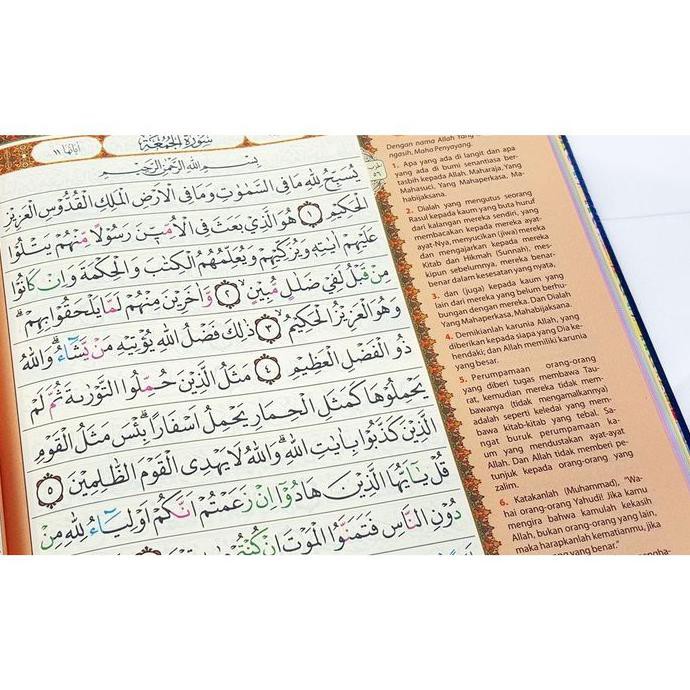 سورة الجمعة
اٰياتها ١١
بِسْمِ اللّٰهِ الرَّحْمٰنِ الرَّحِيْمِ
يُسَبِّحُ لِلّٰهِ مَا فِى السَّمٰوٰتِ وَمَا فِى الْاَرْضِ الْمَلِكِ الْقُدُّوْسِ الْعَزِيْزِ
الْحَكِيْمِ ١ هُوَ الَّذِيْ بَعَثَ فِى الْاُمِّيّٖنَ رَسُوْلًا مِّنْهُمْ يَتْلُوْا
عَلَيْهِمْ اٰيٰتِهٖ وَيُزَكِّيْهِمْ وَيُعَلِّمُهُمُ الْكِتٰبَ وَالْحِكْمَةَ وَاِنْ كَانُوْا
مِنْ قَبْلُ لَفِيْ ضَلٰلٍ مُّبِيْنٍ ٢ وَّاٰخَرِيْنَ مِنْهُمْ لَمَّا يَلْحَقُوْا بِهِمْ
وَهُوَ الْعَزِيْزُ الْحَكِيْمُ ٣ ذٰلِكَ فَضْلُ اللّٰهِ يُؤْتِيْهِ مَنْ يَّشَاۤءُ وَاللّٰهُ
ذُو الْفَضْلِ الْعَظِيْمِ ٤ مَثَلُ الَّذِيْنَ حُمِّلُوا التَّوْرٰىةَ ثُمَّ لَمْ
يَحْمِلُوْهَا كَمَثَلِ الْحِمَارِ يَحْمِلُ اَسْفَارًا بِئْسَ مَثَلُ الْقَوْمِ
الَّذِيْنَ كَذَّبُوْا بِاٰيٰتِ اللّٰهِ وَاللّٰهُ لَا يَهْدِى الْقَوْمَ الظّٰلِمِيْنَ ٥
قُلْ يٰٓاَيُّهَا الَّذِيْنَ هَادُوْٓا اِنْ زَعَمْتُمْ اَنَّكُمْ اَوْلِيَاۤءُ لِلّٰهِ مِنْ
دُوْنِ النَّاسِ فَتَمَنَّوُا الْمَوْتَ اِنْ كُنْتُمْ
Dengan nama Allah Yang
ngasih, Maha Penyayang.
1. Apa yang ada di langit dan apa
yang ada di bumi senantiasa ber-
tasbih kepada Allah. Maharaja, Yang
Mahasuci, Yang Mahaperkasa, Ma-
habijaksana.
2. Dialah yang mengutus seorang
Rasul kepada kaum yang buta huruf
dari kalangan mereka sendiri, yang
membacakan kepada mereka ayat-
ayat-Nya, menyucikan (jiwa) mereka
dan mengajarkan kepada mereka
Kitab dan Hikmah (Sunnah), mes-
kipun sebelumnya, mereka benar-
benar dalam kesesatan yang nyata,
3. dan (juga) kepada kaum yang
lain dari mereka yang belum berhu-
bungan dengan mereka. Dan Dialah
Yang Mahaperkasa, Mahabijaksana.
4. Demikianlah karunia Allah, yang
diberikan kepada siapa yang Dia ke-
hendaki; dan Allah memiliki karunia
yang besar.
5. Perumpamaan orang-orang
yang diberi tugas membawa Tau-
rat, kemudian mereka tidak mem-
bawanya (tidak mengamalkannya)
adalah seperti keledai yang mem-
bawa kitab-kitab yang tebal. Sa-
ngat buruk perumpamaan ka-
um yang mendustakan ayat-ayat
Allah. Dan Allah tidak memberi pe-
tunjuk kepada orang-orang yang
zalim.
6. Katakanlah (Muhammad), "Wa-
hai orang-orang Yahudi! Jika kamu
mengira bahwa kamulah kekasih
Allah, bukan orang-orang yang lain,
maka harapkanlah kematianmu, jika
yang benar."